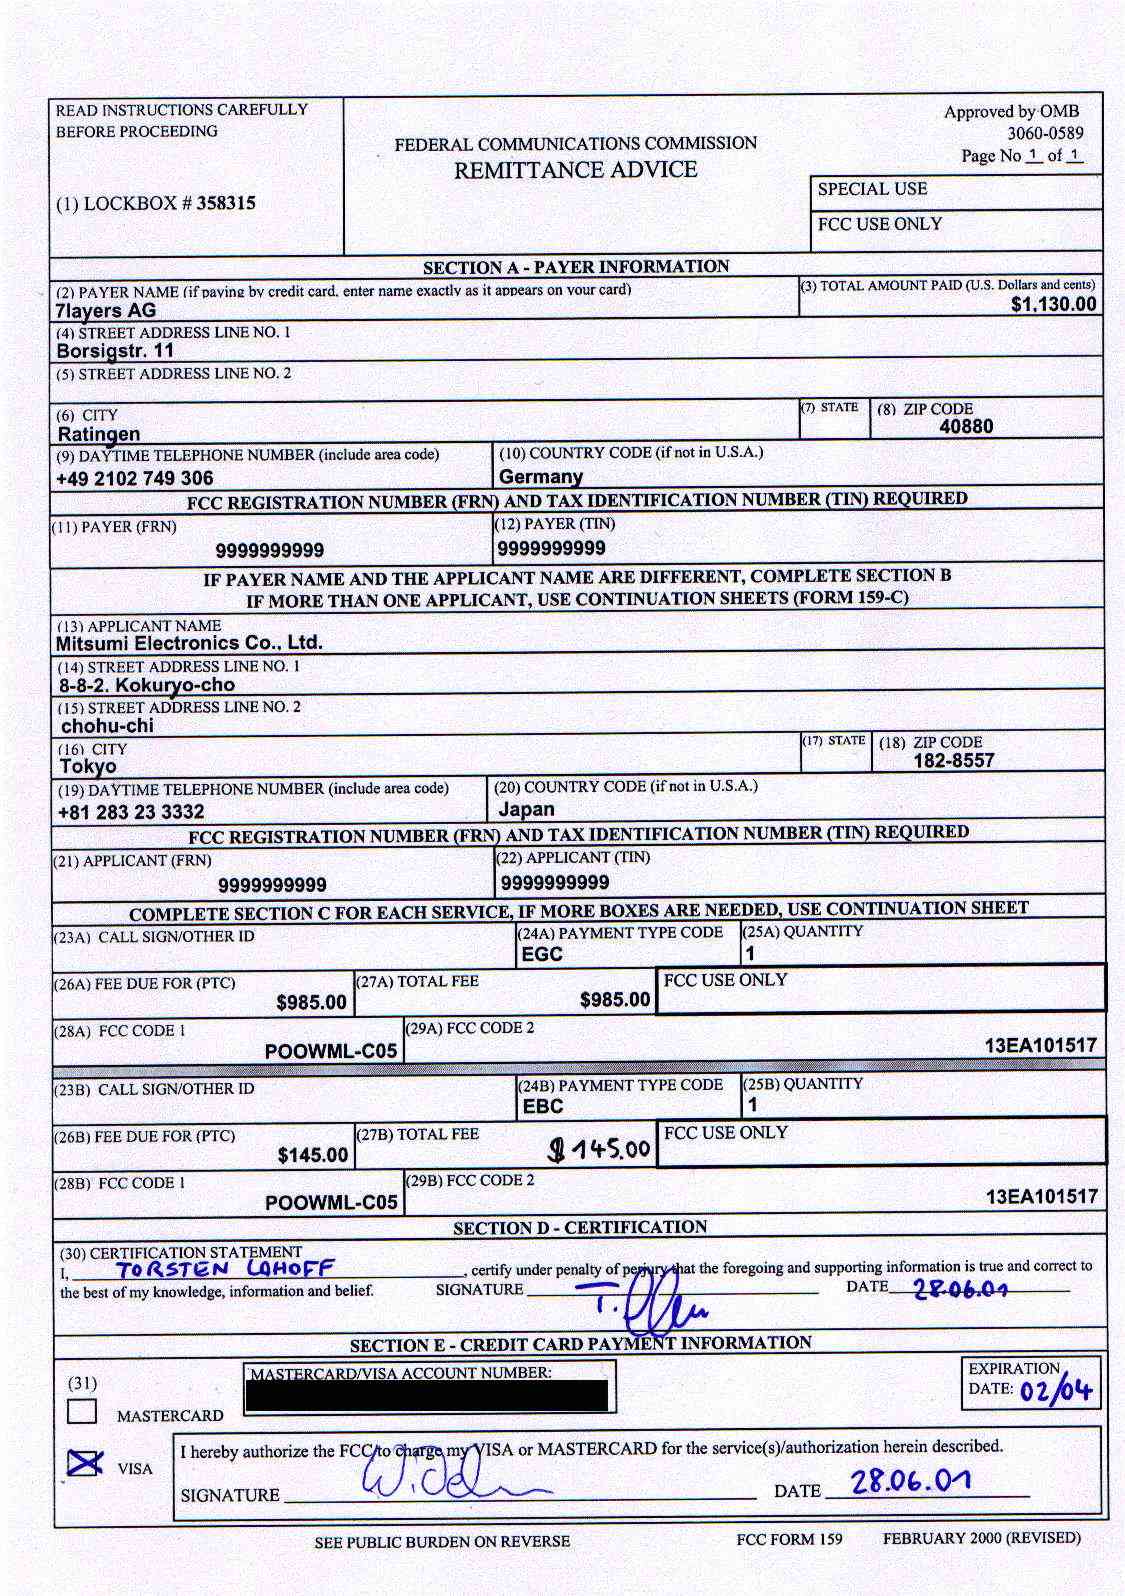 READ INSTRUCTIONS CAREFULLY
BEFORE PROCEEDING
(1) LOCKBOX # 358315
FEDERAL COMMUNICATIONS COMMISSION
REMITTANCE ADVICE
Approved by OMB
3060-0589
Page No 1 of 1
SPECIAL USE
FCC USE ONLY
SECTION A - PAYER INFORMATION
(2) PAYER NAME (if paying by credit card, enter name exactly as it appears on your card)
7layers AG
(3) TOTAL AMOUNT PAID (U.S. Dollars and cents)
$1,130.00
(4) STREET ADDRESS LINE NO. 1
Borsigstr. 11
(5) STREET ADDRESS LINE NO. 2
(6) CITY
Ratingen
(7) STATE
(8) ZIP CODE
40880
(9) DAYTIME TELEPHONE NUMBER (include area code)
+49 2102 749 306
(10) COUNTRY CODE (if not in U.S.A.)
Germany
FCC REGISTRATION NUMBER (FRN) AND TAX IDENTIFICATION NUMBER (TIN) REQUIRED
(11) PAYER (FRN)
9999999999
(12) PAYER (TIN)
9999999999
IF PAYER NAME AND THE APPLICANT NAME ARE DIFFERENT, COMPLETE SECTION B
IF MORE THAN ONE APPLICANT, USE CONTINUATION SHEETS (FORM 159-C)
(13) APPLICANT NAME
Mitsumi Electronics Co., Ltd.
(14) STREET ADDRESS LINE NO. 1
8-8-2. Kokuryo-cho
(15) STREET ADDRESS LINE NO. 2
chohu-chi
(16) CITY
Tokyo
(17) STATE
(18) ZIP CODE
182-8557
(19) DAYTIME TELEPHONE NUMBER (include area code)
+81 283 23 3332
(20) COUNTRY CODE (if not in U.S.A.)
Japan
FCC REGISTRATION NUMBER (FRN) AND TAX IDENTIFICATION NUMBER (TIN) REQUIRED
(21) APPLICANT (FRN)
9999999999
(22) APPLICANT (TIN)
9999999999
COMPLETE SECTION C FOR EACH SERVICE, IF MORE BOXES ARE NEEDED, USE CONTINUATION SHEET
(23A) CALL SIGN/OTHER ID
(24A) PAYMENT TYPE CODE
EGC
(25A) QUANTITY
1
(26A) FEE DUE FOR (PTC)
$985.00
(27A) TOTAL FEE
$985.00
FCC USE ONLY
(28A) FCC CODE 1
POOWML-C05
(29A) FCC CODE 2
13EA101517
(23B) CALL SIGN/OTHER ID
(24B) PAYMENT TYPE CODE
EBC
(25B) QUANTITY
1
(26B) FEE DUE FOR (PTC)
$145.00
(27B) TOTAL FEE
$145.00
FCC USE ONLY
(28B) FCC CODE 1
POOWML-C05
(29B) FCC CODE 2
13EA101517
SECTION D - CERTIFICATION
(30) CERTIFICATION STATEMENT
I, TORSTEN LOHOFF, certify under penalty of perjury that the foregoing and supporting information is true and correct to
the best of my knowledge, information and belief. SIGNATURE DATE 28.06.01
SECTION E - CREDIT CARD PAYMENT INFORMATION
(31)
MASTERCARD/VISA ACCOUNT NUMBER:
EXPIRATION
DATE: 02/04
MASTERCARD
VISA
I hereby authorize the FCC to charge my VISA or MASTERCARD for the service(s)/authorization herein described.
SIGNATURE DATE 28.06.01
SEE PUBLIC BURDEN ON REVERSE
FCC FORM 159 FEBRUARY 2000 (REVISED)